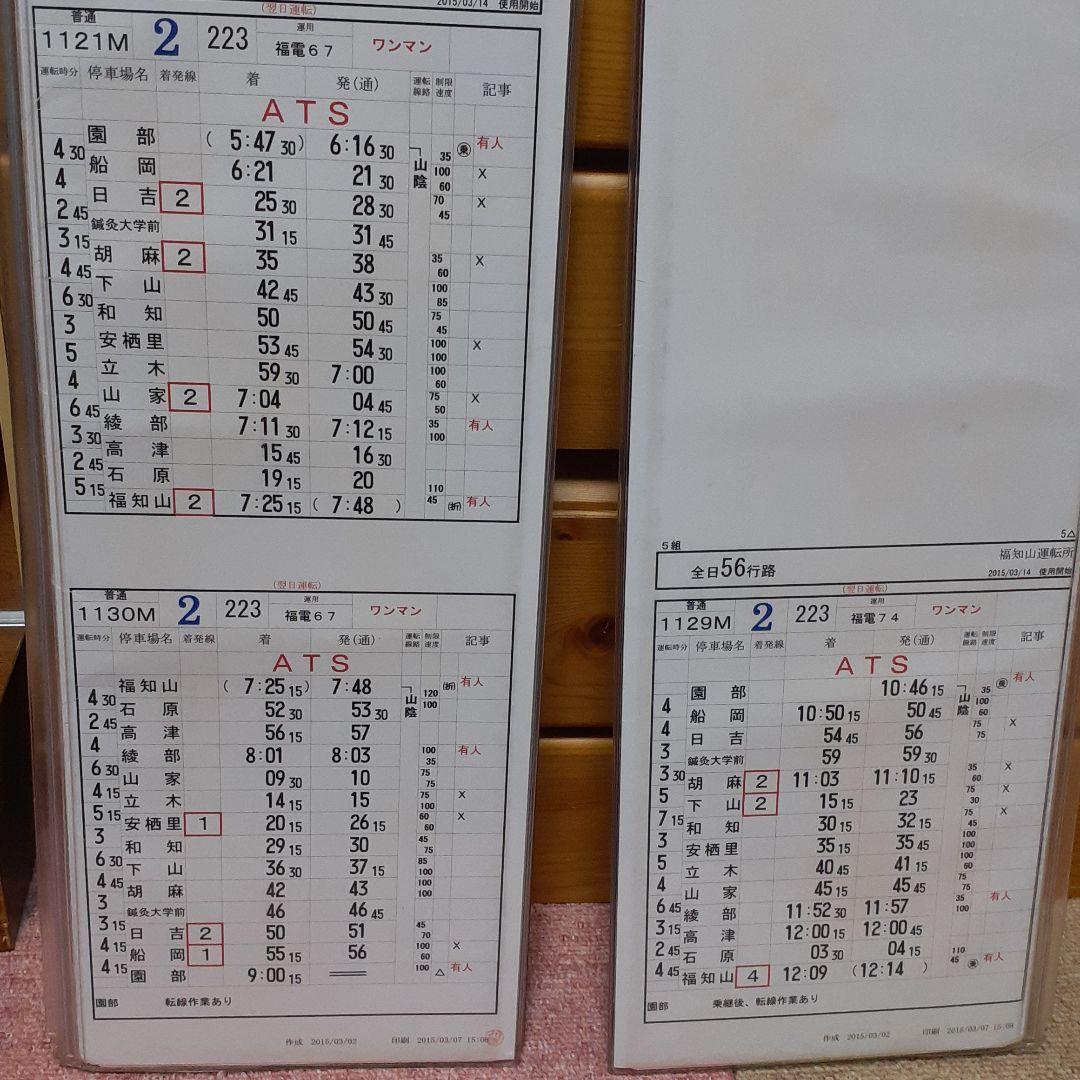 (翌日運転)
2015/03/14 使用開始
普通
1121M 2 223 運用 福電67 ワンマン
運転時分 停車場名 着発線 着 発(通) 運転線路 制限速度 記事
ATS
園部 (5:47 30) 6:16 30 山陰 35 乗 有人
4 30
船岡 6:21 21 30 100 60 X
4
日吉 2 25 30 28 30 70 45 X
2 45
鍼灸大学前 31 15 31 45
3 15
胡麻 2 35 38 35 60 X
4 45
下山 42 45 43 30 100 85
6 30
和知 50 50 45 75 45
3
安栖里 53 45 54 30 100 100 X
5
立木 59 30 7:00 100 60
4
山家 2 7:04 04 45 75 50 X
6 45
綾部 7:11 30 7:12 15 35 100 有人
3 30
高津 15 45 16 30
2 45
石原 19 15 20
5 15
福知山 2 7:25 15 (7:48) 110 45 (折) 有人
(翌日運転)
普通
1130M 2 223 運用 福電67 ワンマン
運転時分 停車場名 着発線 着 発(通) 運転線路 制限速度 記事
ATS
福知山 (7:25 15) 7:48 山陰 120 100 (折) 有人
4 30
石原 52 30 53 30
2 45
高津 56 15 57
4
綾部 8:01 8:03 100 35 有人
6 30
山家 09 30 10 75 75
4 15
立木 14 15 15 75 100 X
5 15
安栖里 1 20 15 26 15 60 60 X
3
和知 29 15 30 45 75
6 30
下山 36 30 37 15 85 100
4 45
胡麻 42 43 100 100
3
鍼灸大学前 46 46 45
3 15
日吉 2 50 51 45 70
4 15
船岡 1 55 15 56 100 60 X
4 15
園部 9:00 15 100 △ 有人
園部 転線作業あり
作成 2015/03/02 印刷 2015/03/07 15:08
5組 5△
全日56行路 福知山運転所
2015/03/14 使用開始
(翌日運転)
普通
1129M 2 223 運用 福電74 ワンマン
運転時分 停車場名 着発線 着 発(通) 運転線路 制限速度 記事
ATS
園部 10:46 15 山陰 35 乗 有人
4
船岡 10:50 15 50 45 100 60
4
日吉 54 45 56 75 75 X
3
鍼灸大学前 59 59 30
3 30
胡麻 2 11:03 11:10 15 35 60 X
5
下山 2 15 15 23 75 30 X
7 15
和知 30 15 32 15 75 45 X
3
安栖里 35 15 35 45 100 100
5
立木 40 45 41 15 100 60
4
山家 45 15 45 45 75 75
6 45
綾部 11:52 30 11:57 35 100 有人
3
高津 12:00 15 12:00 45
2 45
石原 03 30 04 15
4 45
福知山 4 12:09 (12:14) 110 45 乗 有人
園部 乗継後、転線作業あり
作成 2015/03/02 印刷 2015/03/07 15:08